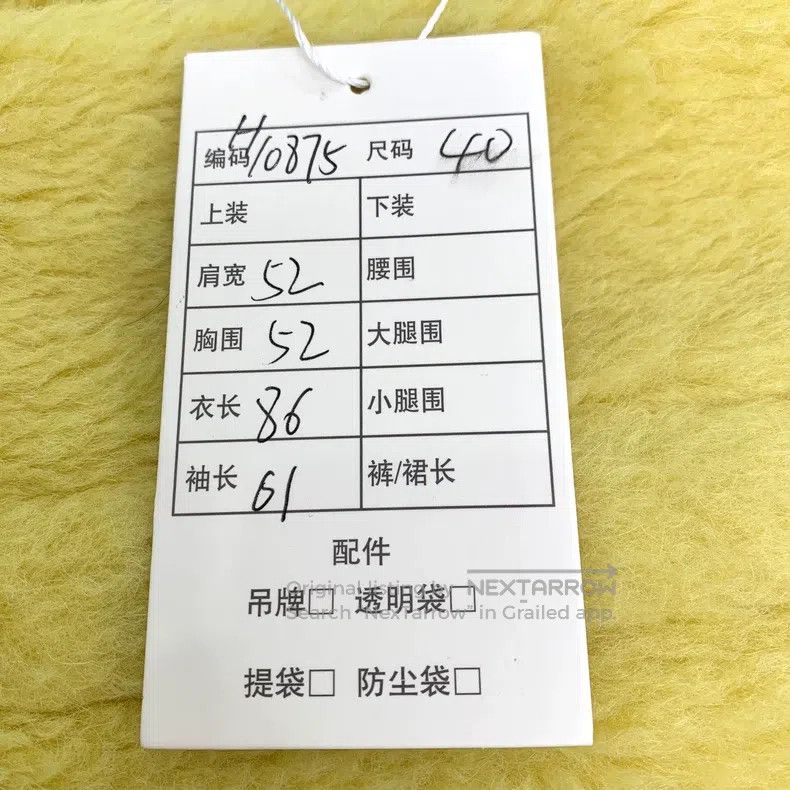 编码 H10875 尺码 40
上装 下装
肩宽 52 腰围
胸围 52 大腿围
衣长 86 小腿围
袖长 61 裤/裙长
配件
Original listing by NEXTARROW
吊牌□ 透明袋□
Search "NexTarrow" in Grailed app.
提袋□ 防尘袋□